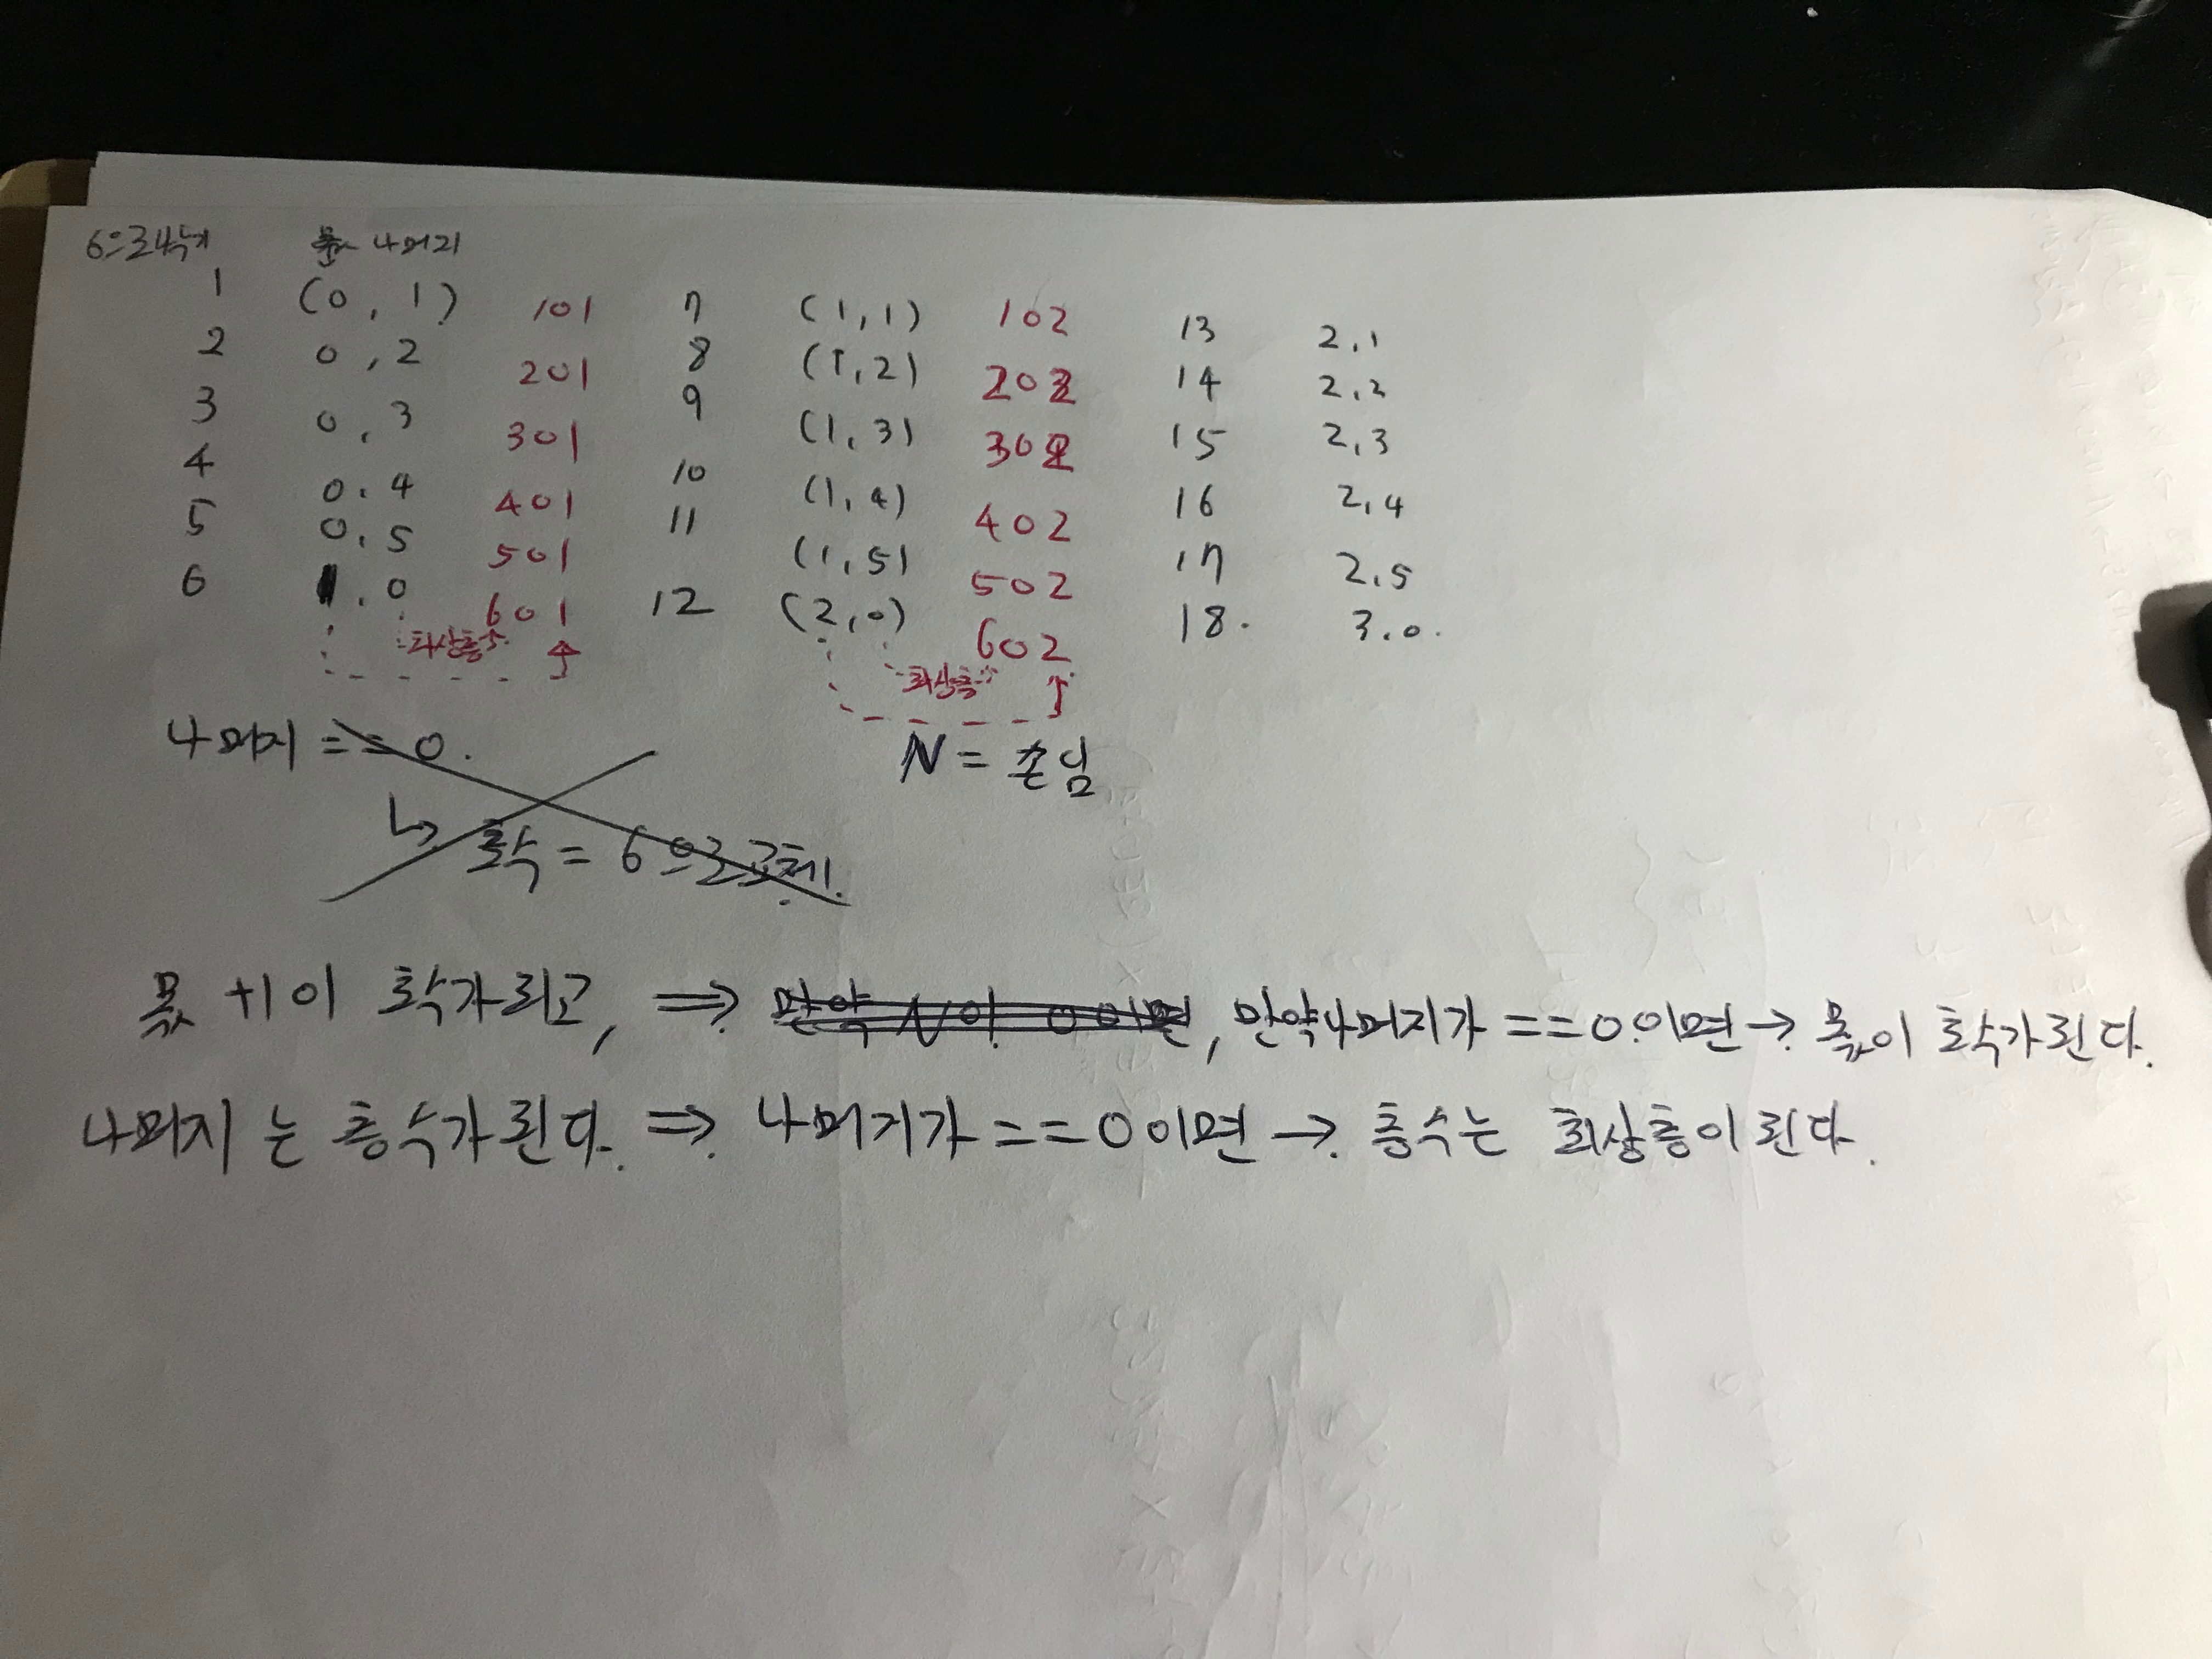 6으로나누기 몫 나머지
1 (0, 1) 101 7 (1, 1) 102 13 2, 1
2 0, 2 201 8 (1, 2) 202 14 2, 2
3 0, 3 301 9 (1, 3) 302 15 2, 3
4 0, 4 401 10 (1, 4) 402 16 2, 4
5 0, 5 501 11 (1, 5) 502 17 2, 5
6 1, 0 601 12 (2, 0) 602 18. 3, 0.
최상층 최상층
나머지 == 0. N = 손님
↳ 호수 = 6으로고체.
몫 +1이 호수가되고, ⇒ 만약 N이 0이면, 만약나머지가 ==0이면 → 몫이 호수가된다.
나머지는 층수가된다. ⇒ 나머지가 ==0이면 → 층수는 최상층이된다.